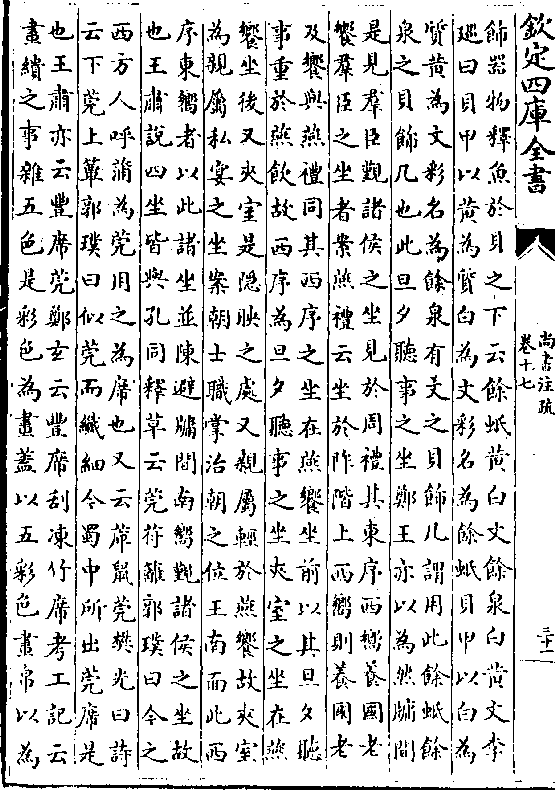 欽定四庫全書
尚書注疏
卷十七
三十二
飾器物釋魚於貝之下云餘蚳黃白文餘泉白黃文李
巡曰貝甲以黃為質白為文彩名為餘蚳貝甲以白為
質黃為文彩名為餘泉有文之貝飾几謂用此餘蚳餘
泉之貝飾几也此旦夕聽事之坐鄭王亦以為然牖間
是見羣臣覲諸侯之坐見於周禮其東序西嚮養國老
饗羣臣之坐者案燕禮云坐於阼階上西嚮則養國老
及饗與燕禮同其西序之坐在燕饗坐前以其旦夕聽
事重於燕飲故西序為旦夕聽事之坐夾室之坐在燕
饗坐後又夾室是隱映之處又親屬輕於燕饗故夾室
為親屬私宴之坐案朝士職掌治朝之位王南面此西
序東嚮者以此諸坐並陳避牖間南嚮覲諸侯之坐故
也王肅說四坐皆與孔同釋草云莞苻蘺郭璞曰今之
西方人呼蒲為莞用之為席也又云䕮鼠莞樊光曰詩
云下莞上簟郭璞曰似莞而纖細今蜀中所出莞席是
也王肅亦云豐席莞鄭玄云豐席刮凍竹席考工記云
畫繢之事雜五色是彩色為畫蓋以五彩色畫帛以為